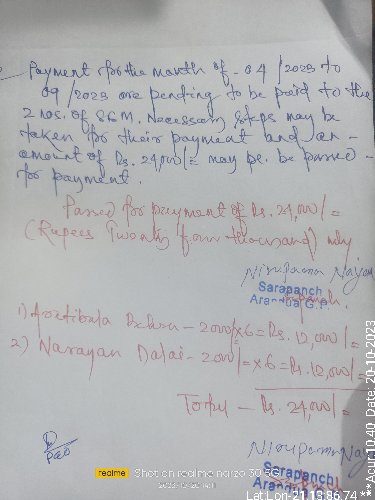 Payment for the month of - 04/2023 to
09/2023 are pending to be paid to the
2 nos. of SGM. Necessary steps may be
taken for their payment and an -
amount of Rs. 24,000/= may pe. be passed -
for payment.
Passed for payment of Rs. 24,000/=
(Rupees Twenty four thousand) only
Nirupama Nayak
Sarapanch
Arandua G.P.
1) Behera - 2000/=x6=Rs. 12,000/=
2) Narayan Dalai - 2000/=x6=Rs. 12,000/=
Total - Rs. 24,000/=
Nirupama Nayak
PEO
Sarapanch
Arandua
realme Shot on realme narzo 30 5G
2023.10.20 10:41
Lat Lon-21.13,86.74 ***Acur:10.40, Date: 20-10-2023